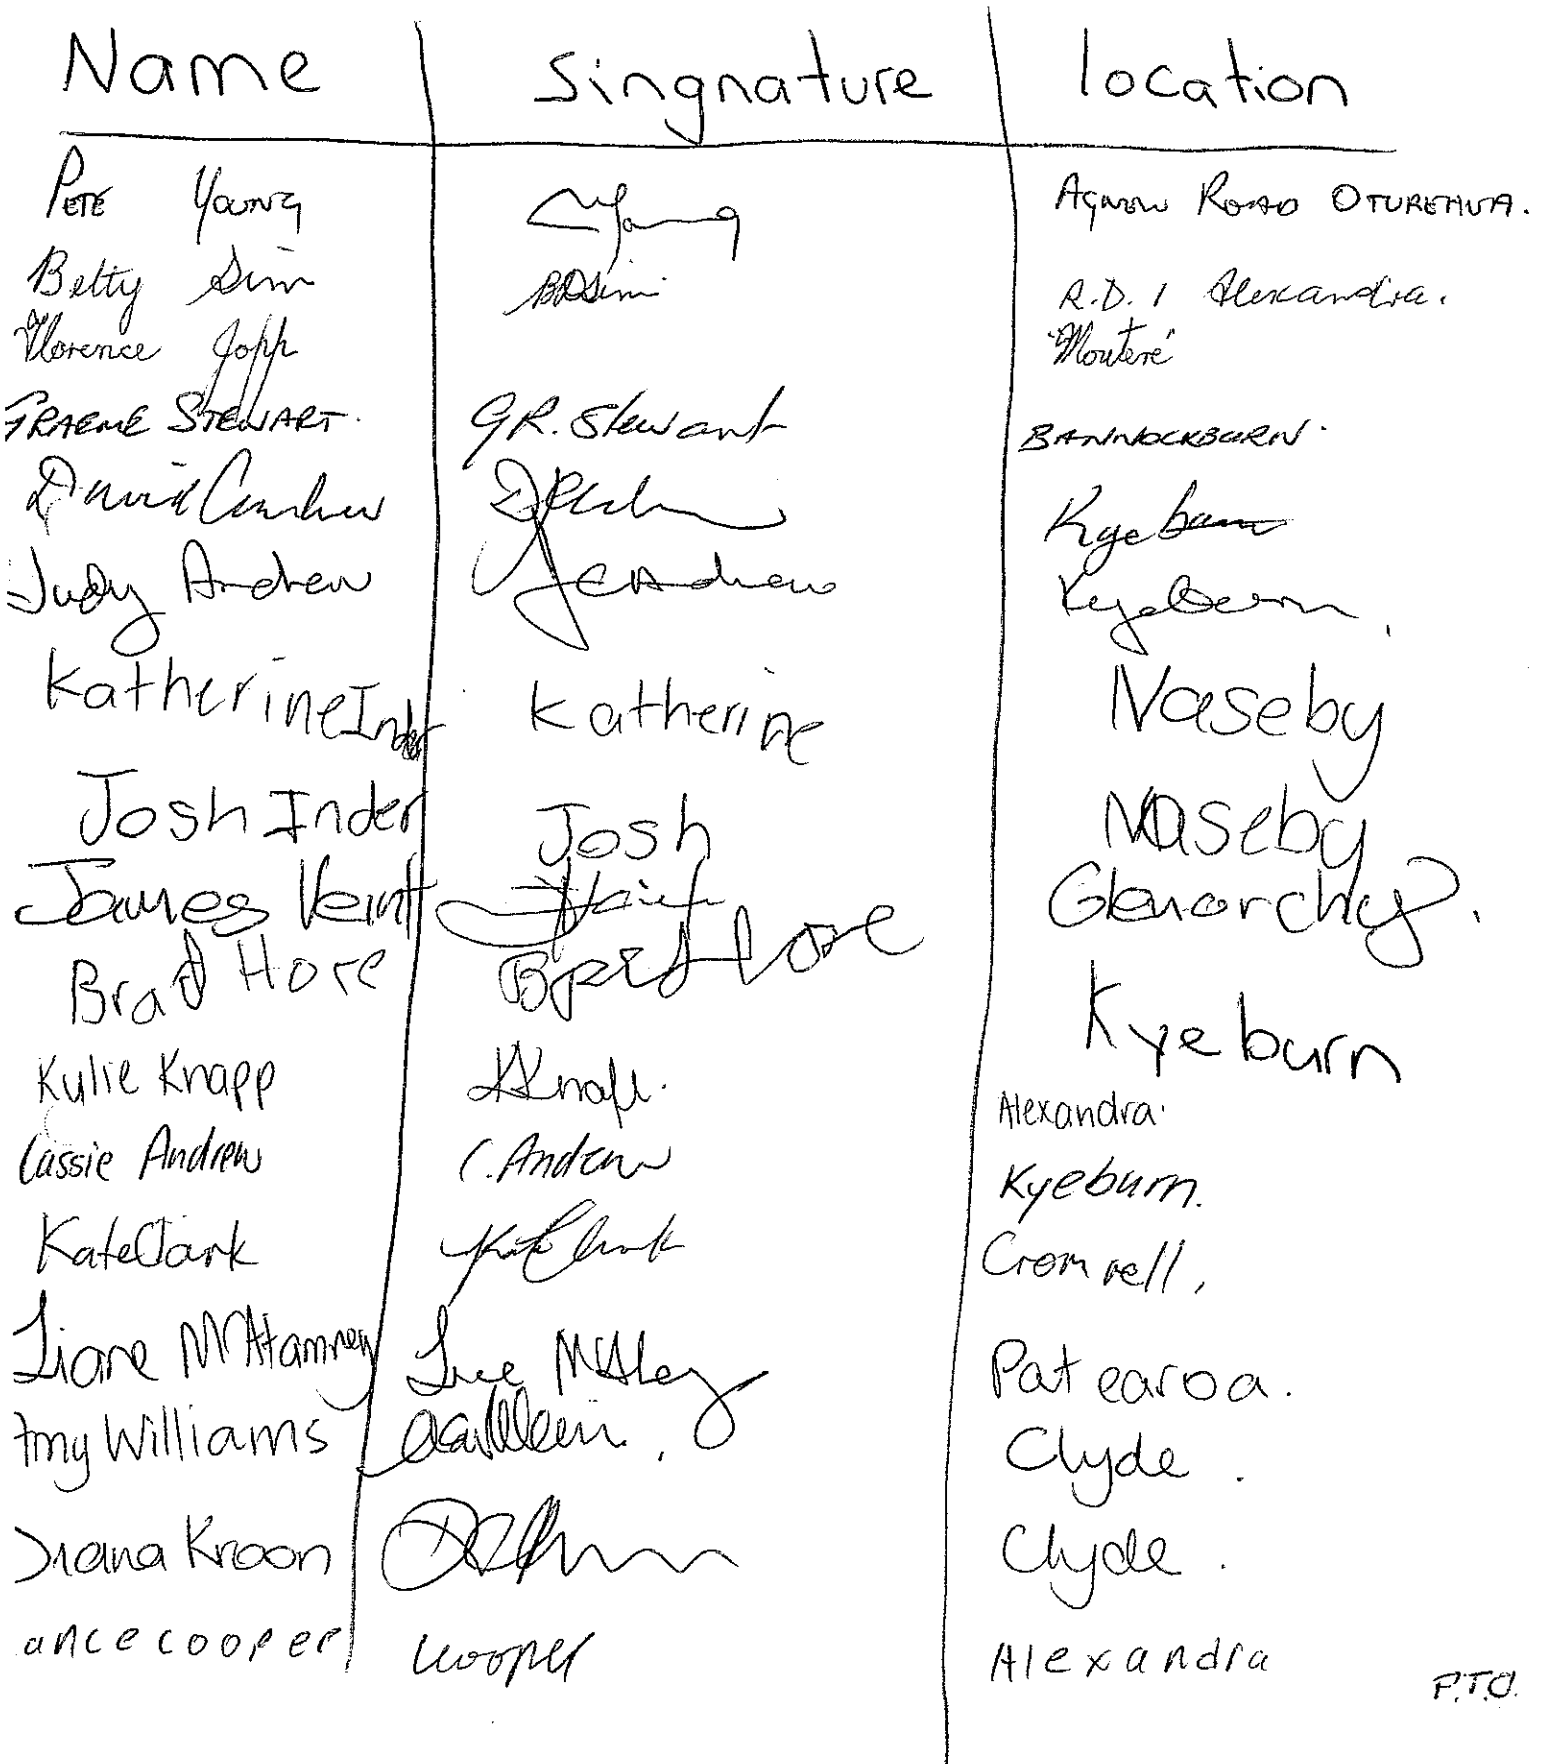 Name Singnature location
PETE YOUNG Young AGNEW ROAD OTUREHUA.
Betty Sim BDSim R.D. 1 Alexandra.
Florence Jopp
GRAEME STEWART. GR. Stewart BANNOCKBURN.
David Kyeburn
Judy Andrew JCAndrew Kyeburn.
Katherine Inder Katherine Naseby
Josh Inder Josh Naseby
James Veint Glenorchy.
Brad Hore Brad Hore Kyeburn
Kylie Knapp KKnapp. Alexandra.
Cassie Andrew C. Andrew Kyeburn.
Kate Clark Kate Clark Cromwell,
Liane McAtamney Patearoa.
Amy Williams Clyde.
Diana Kroon Clyde.
ance cooper Lcooper Alexandra
P.T.O.